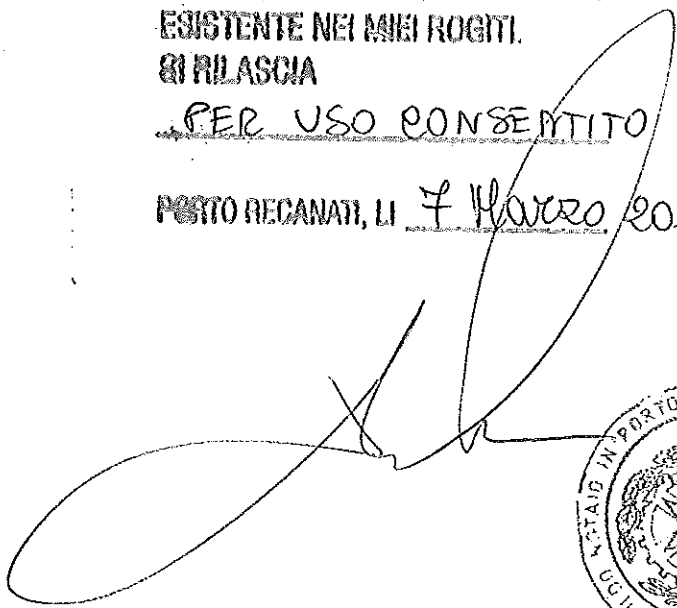 ESISTENTE NEI MIEI ROGITI.
SI RILASCIA
PER USO CONSENTITO
PORTO RECANATI, LI 7 Marzo 20
NOTAIO IN PORTO